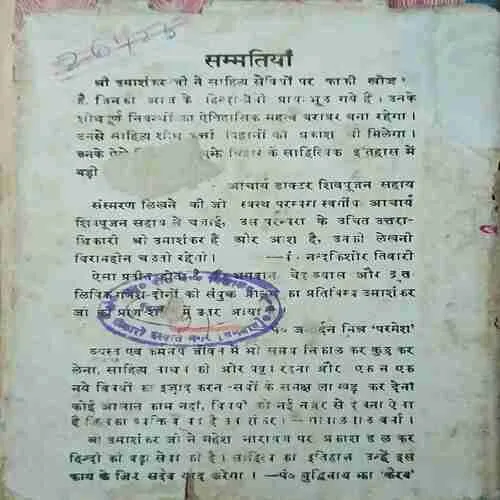 26428
सम्मतियां
श्री उमाशंकर जी ने साहित्य सेवियों पर काफी खोज
है, जिनको आज के हिन्दी प्रायः भूल गये हैं। उनके
शोधपूर्ण निबन्धों का ऐतिहासिक महत्व बराबर बना रहेगा।
उनसे साहित्य शोध कर्त्ता विद्वानों को प्रकाश भी मिलेगा।
उनके ऐसे बिहार के साहित्यिक इतिहास में
बड़ी
आचार्य डाक्टर शिवपूजन सहाय
संस्मरण लिखने की जो स्वस्थ परम्परा स्वर्गीय आचार्य
शिवपूजन सहाय ने चलाई, उस परम्परा के उचित उत्तरा-
धिकारी श्री उमाशंकर हैं और आशा है, उनकी लेखनी
विरामहीन चलती रहेगी। —पं. नन्दकिशोर तिवारी
ऐसा प्रतीत होता है, वेद व्यास और द्रुत
लिपिक गणेश दोनों का संयुक्त प्रतिबिम्ब उमाशंकर
जी में उतर आया
पं० जनार्दन मिश्र 'परमेश'
व्यस्त एवं कर्ममय जीवन में भी समय निकाल कर कुछ कर
लेना, साहित्य साधना की ओर प्रवृत्त रहना और एक न एक
नये विषयों का इजाद करना -सबों के समक्ष ला खड़ा कर देना
कोई आसान काम नहीं, विषय को नई नजर से देखना ऐसा
है
श्री उमाशंकर जी ने महेश नारायण पर प्रकाश डाल कर
हिन्दी की बड़ी सेवा की है। साहित्य का इतिहास उन्हें इस
कार्य के लिए सदैव याद करेगा। —पं० बुद्धिनाथ झा 'कैरव'